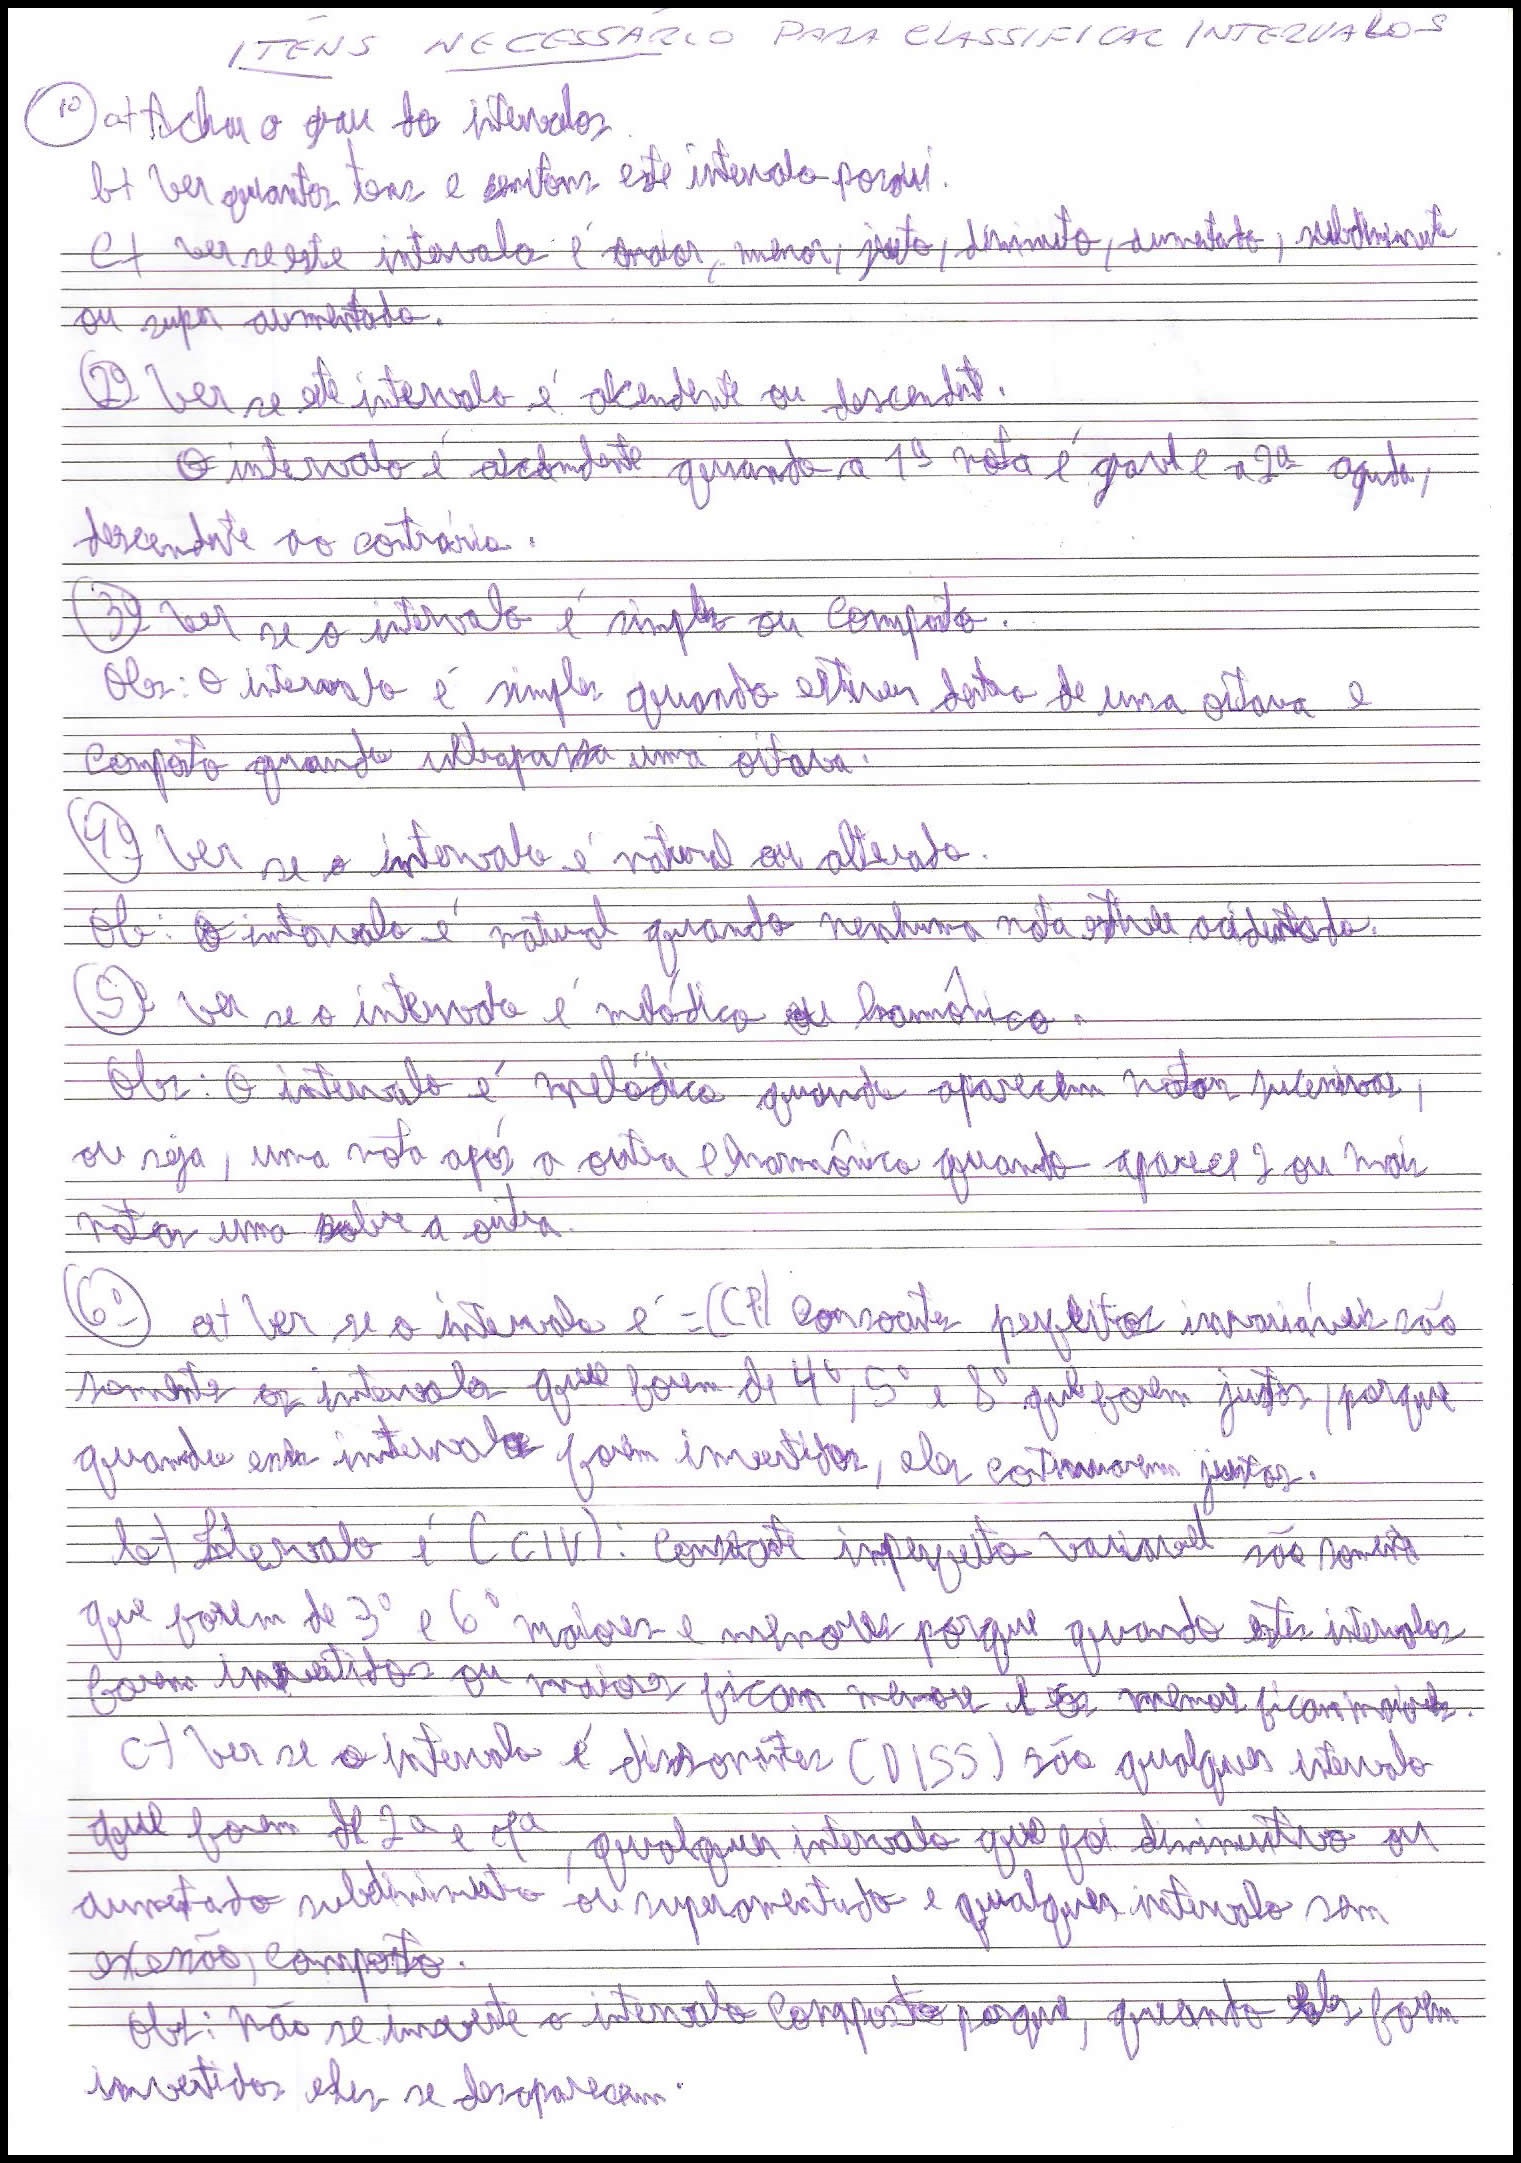 ITÉNS NECESSÁRIO PARA CLASSIFICAR INTERVALOS
1º a+ Achar o grau do intervalos.
b+ Ver quantos tons e semitons este intervalo possui.
C+ Ver se este intervalo é maior, menor, justo, diminuto, aumentado, subdiminuto
ou super aumentado.
2º Ver se este intervalo é acendente ou descendente.
O intervalo é acendente quando a 1ª nota é grave e a 2ª aguda,
descendente ao contrário.
3º Ver se o intervalo é simples ou composto.
Obs: O intervalo é simples quando estiver dentro de uma oitava e
composto quando ultrapassa uma oitava.
4º Ver se o intervalo é natural ou alterado.
Ob: O intervalo é natural quando nenhuma nota estiver acidentada.
5º Ver se o intervalo é melódico ou harmônico.
Obs: O intervalo é melódico quando aparecem notas sucessivas,
ou seja, uma nota após a outra e harmônico quando aparece 2 ou mais
notas uma sobre a outra.
6º a+ Ver se o intervalo é = (CPI) Consoantes perfeitos invariáveis são
somente os intervalos que forem de 4º, 5º e 8º que forem justos, porque
quando esses intervalos forem invertidos, eles continuarem justos.
b+ Intervalo é (CIV): Consoante imperfeito variavel são somente
que forem de 3º e 6º maiores e menores porque quando estes intervalos
forem invertidos ou maiores ficam menores e os menores ficam maiores.
C+ Ver se o intervalo é dissonantes (DISS) são qualquer intervalo
que forem de 2ª e 7ª, qualquer intervalo que foi diminuitivo ou
aumentado subdiminuto ou superaumentado e qualquer intervalo sem
exessão, composto.
Obs: Não se inverte o intervalo composto porque, quando eles forem
invertidos eles se desaparecem.